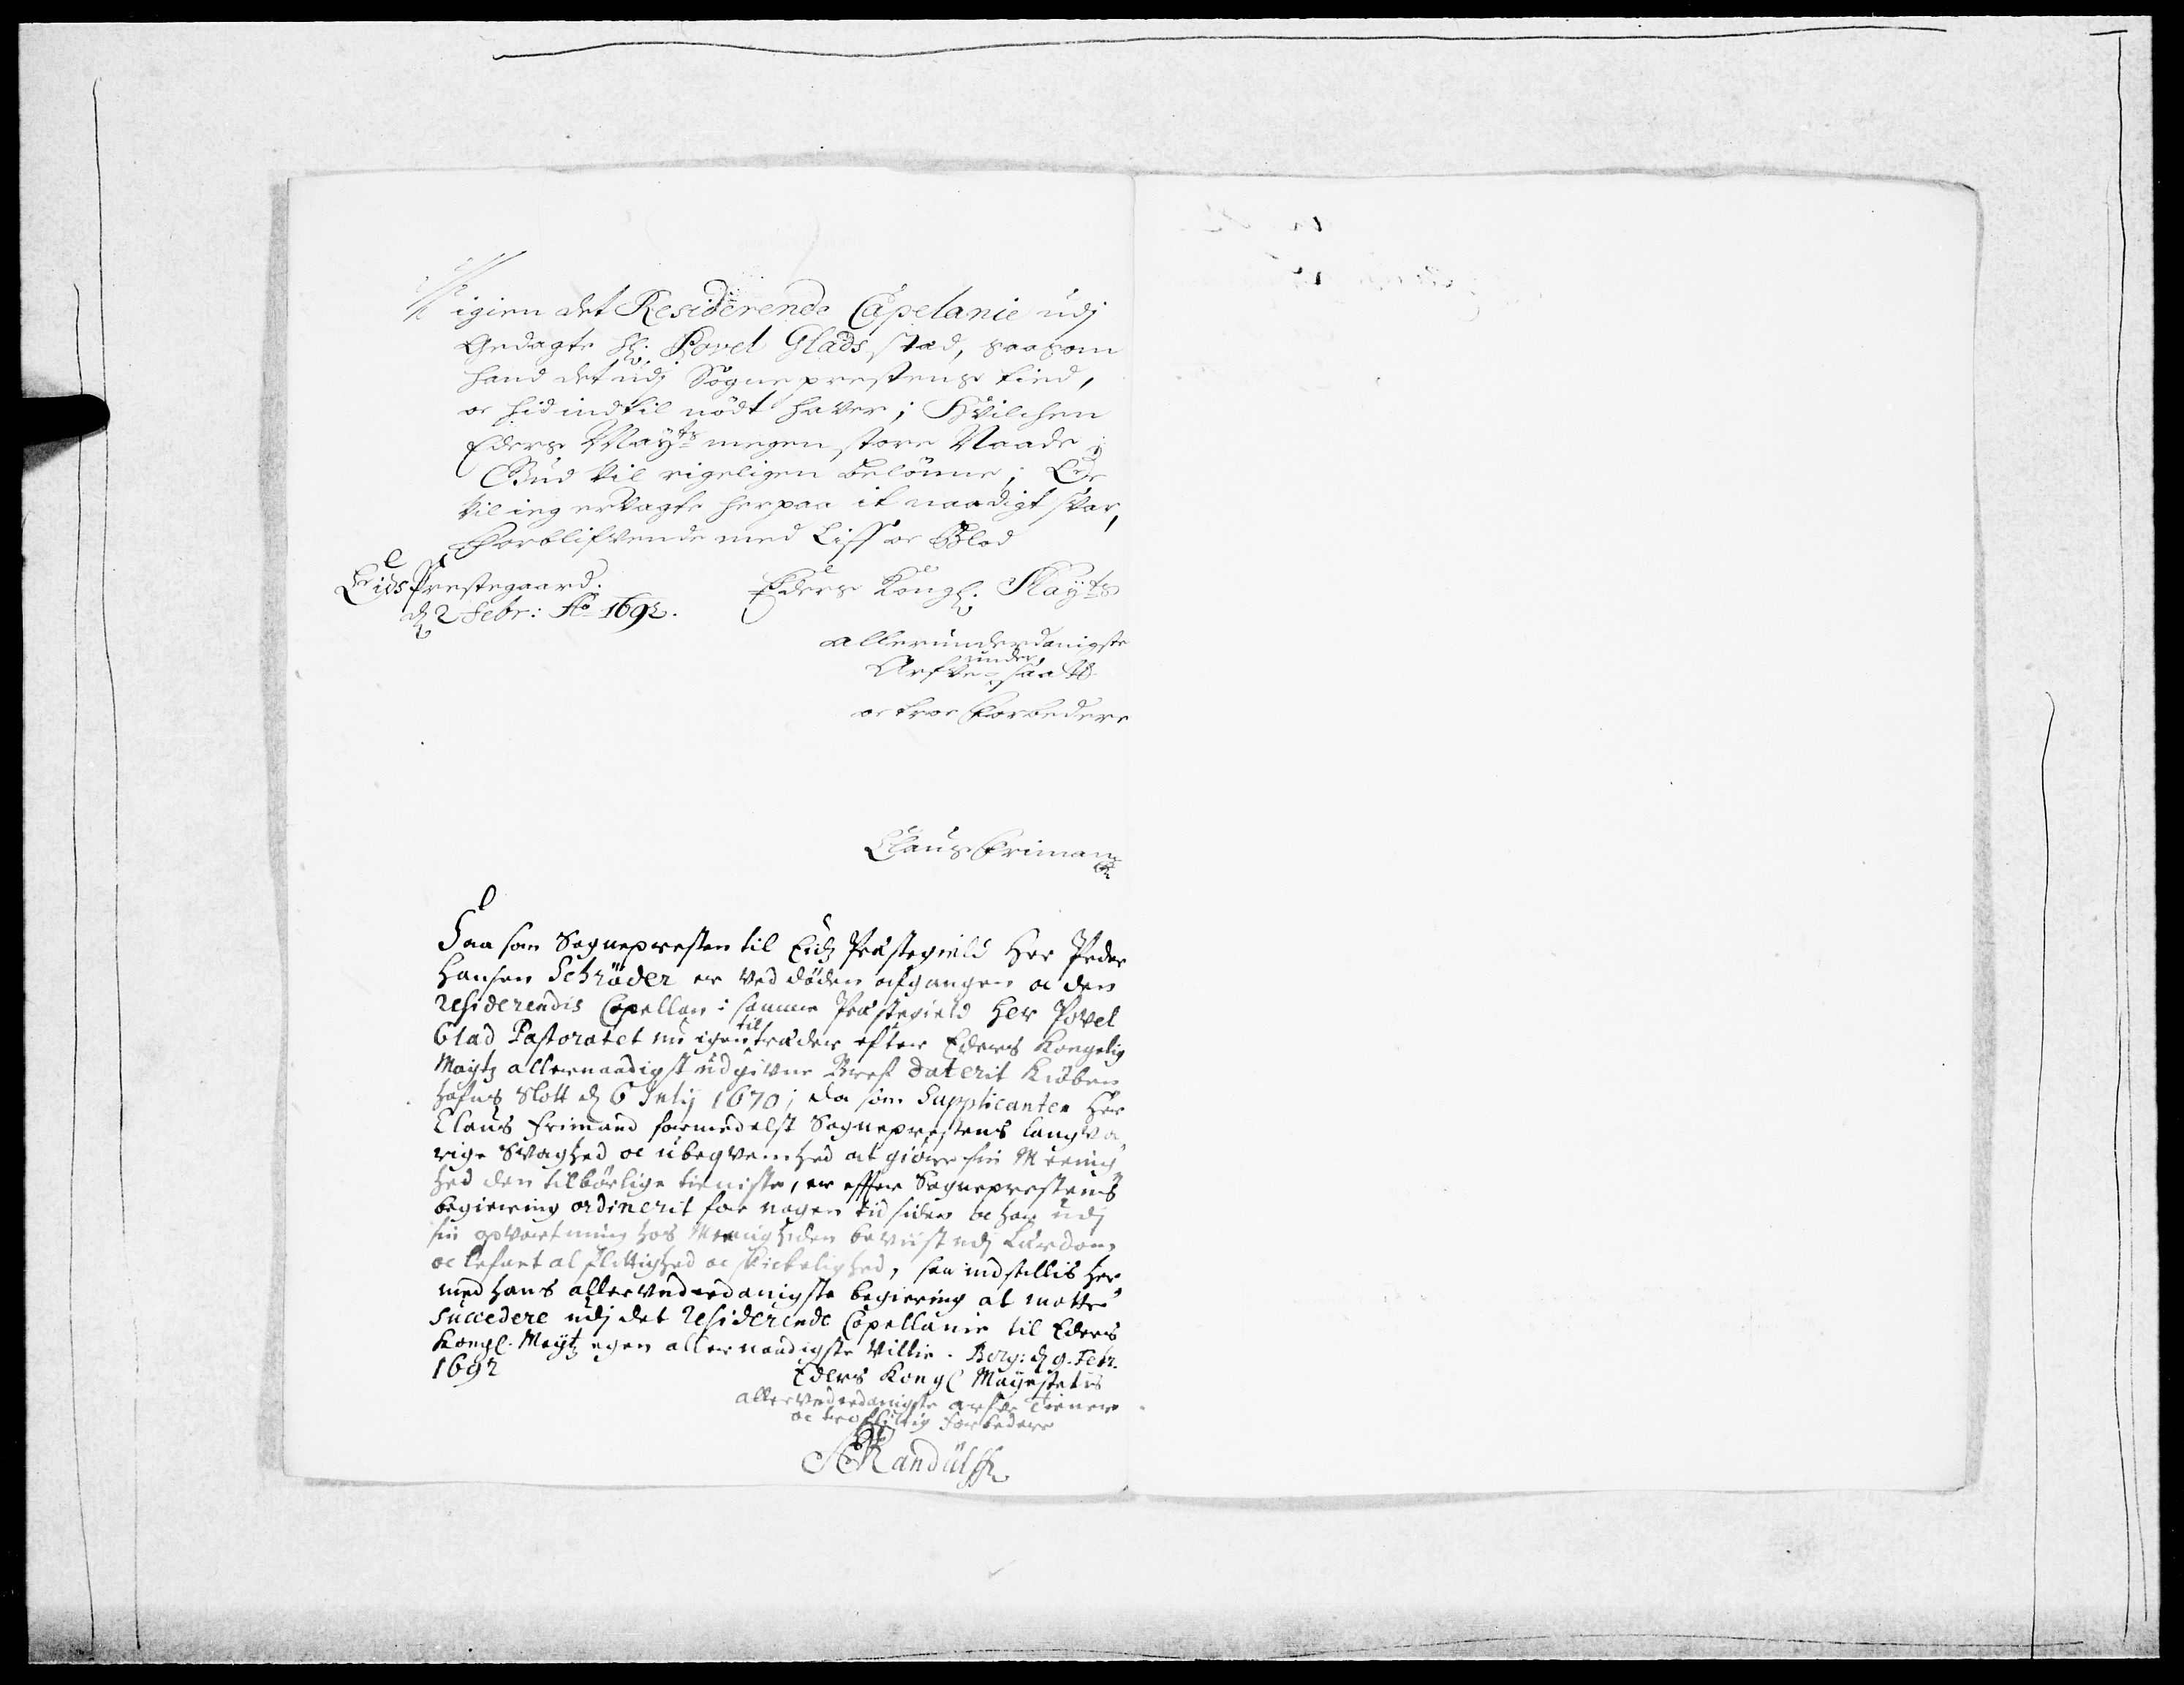 igien det Residerende Capelanie udj
bedagte Hr. Povel Glads stæd, saasom
hand det udj Sogneprestens tied,
oc hid indtil nödt haver; Hvilchen
Eders Mayts megen store Naade
Gud vil rigeligen belönne;
vil ieg ervagte herpaa it naadigt svar,
Forblifvende med Liff oc Blod
Eids Prestegaard.
d 2 Febr: Ao 1692.
Eders Kongl. Mayts
allerunderdanigste
Arfve undersaatt
oc troe Forbedere
Claus Friman
Saa som Sognepresten til Eidz Præstegield Her Peder
Hansen Schröder er ved döden afgangen oc den
residerendis Capellan i samme Præstegield Her Povel
Glad Pastoratet nu igen tiltræder efter Eders Kongelig
Maytz allernaadigst udgivne Bref daterit Kiöben
hafns Slott d 6 July 1670; da som Supplicanten Her
Claus Frimand formedelst Sogneprestens langva
rige Svaghed oc ubeqvemhed at giöre sin Meenig
hed den tilbörlige tieniste, er effter Sogneprestens
begiering ordinerit for nogen tid siden oc har udj
sin opvartning hos Menigheden bevist udj Lærdom
oc Lefnet al flittighed oc skickelighed, saa indstillis her
med hans allerunderdanigste begiering at motte
succedere udj det residerende Capellanie til Eders
Kongl. Maytz egen allernaadigste Villie. Berg: d 9. Febr.
1692
Eders Kongl Mayestetis
allerunderdanigste arfve Tiener
oc troe flittig forbedere
Randulff